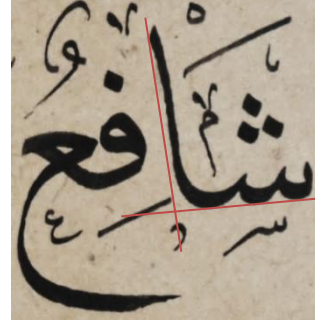 شافع